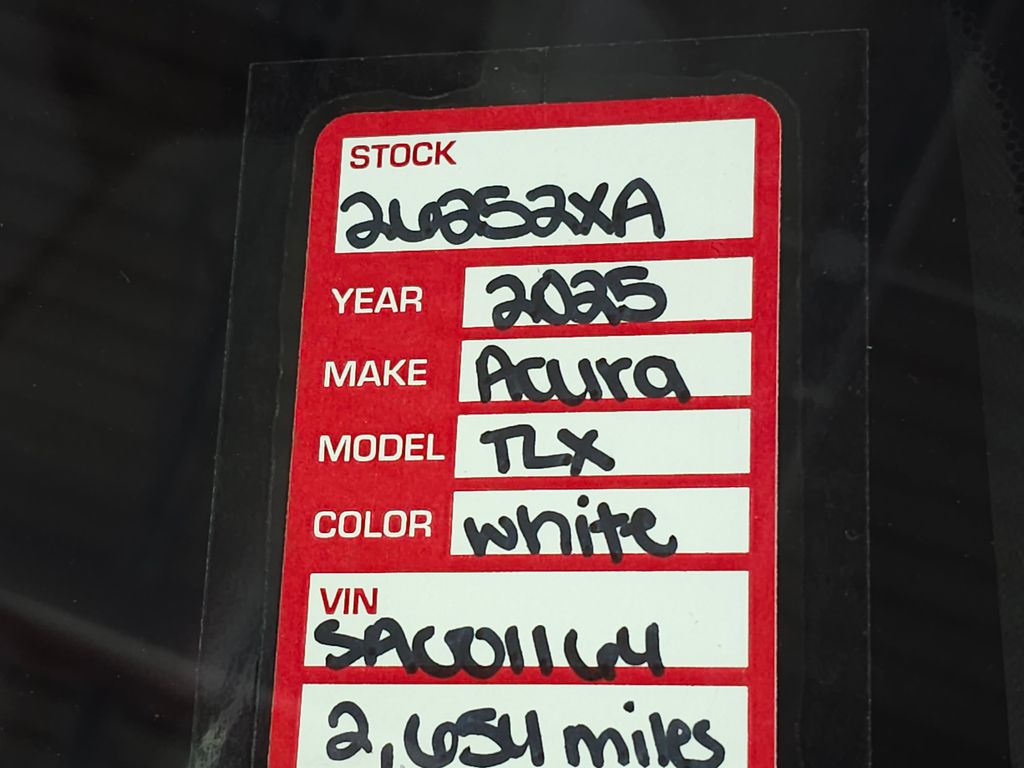 STOCK
26252XA
YEAR 2025
MAKE Acura
MODEL TLX
COLOR White
VIN
SA001164
2,654 miles